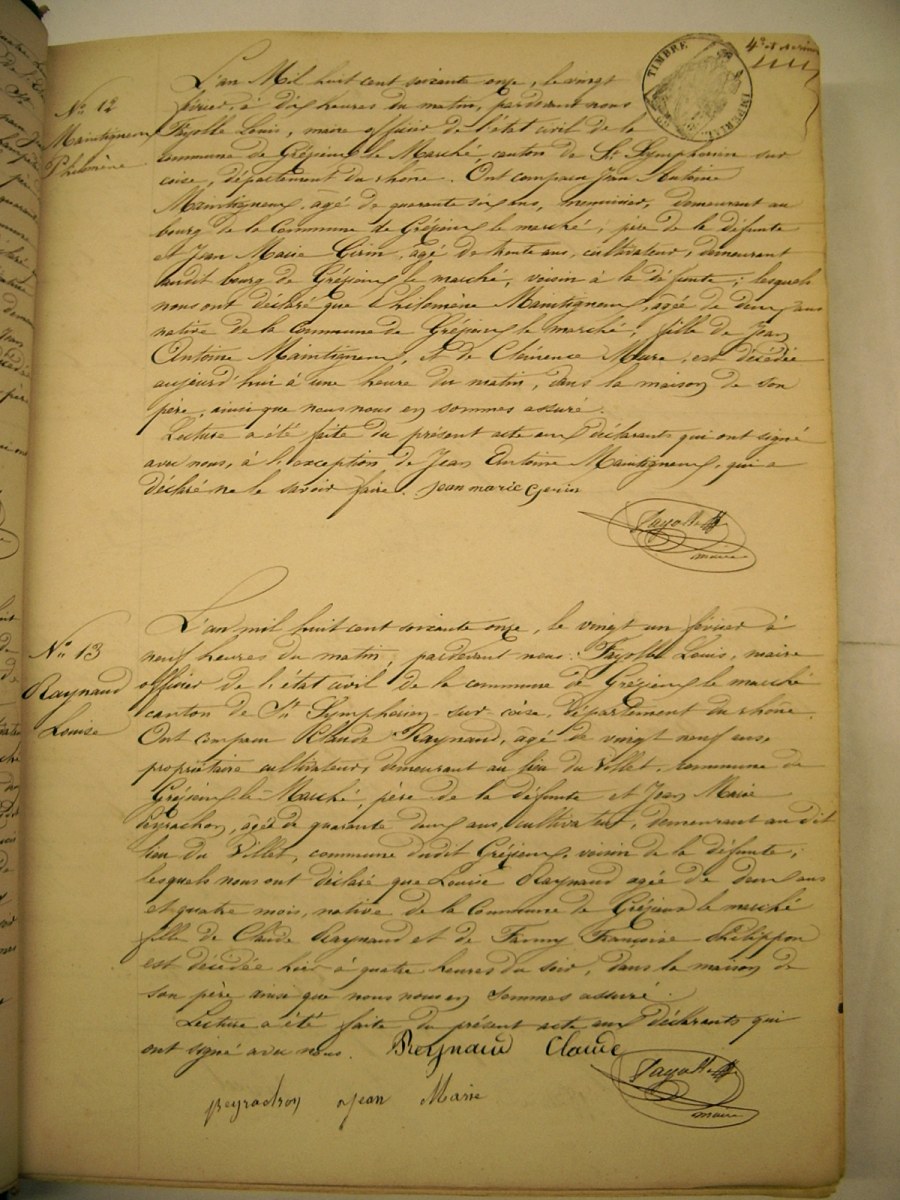 N° 12
Maintigneux
Philomène
TIMBRE IMPERIAL
L'an Mil huit cent soixante onze, le vingt
février, à dix heures du matin, pardevant nous
Fayolle Louis, maire officier de l'état civil de la
commune de Grézieux le Marché, canton de St Symphorien sur
coise, département du rhône. Ont comparu Jean Antoine
Maintigneux, agé de quarante six ans, menuisier, demeurant au
bourg de la Commune de Grézieux le marché, père de la défunte
et Jean Marie Girin, agé de trente ans, cultivateur, demeurant
audit bourg de Grézieux le marché, voisin à la défunte; lesquels
nous ont déclaré que Philomène Maintigneux, agée de deux ans
native de la Commune de Grézieux le marché, fille de Jean
Antoine Maintigneux, et de Clémence Mure, est décédée
aujourd'hui à une heure du matin, dans la maison de son
père, ainsi que nous nous en sommes assuré.
Lecture a été faite du présent acte aux déclarants qui ont signé
avec nous, à l'exception de Jean Antoine Maintigneux, qui a
déclaré ne le savoir faire. jean marie Girin
Fayolle
maire
N° 13
Raynaud
Louise
L'an mil huit cent soixante onze, le vingt un février à
neuf heures du matin, pardevant nous Fayolle Louis, maire
officier de l'état civil de la commune de Grézieux le marché
canton de St Symphorien-sur-coise, département du rhône.
Ont comparu Claude Raynaud, agé de vingt neuf ans,
propriétaire cultivateur, demeurant au lieu du Villet, commune de
Grézieux-le-Marché, père de la défunte et Jean Marie
Peyrachon, agée de quarante deux ans, cultivateur, demeurant au dit
lieu du Villet, commune dudit Grézieux, voisin de la défunte;
lesquels nous ont déclaré que Louise Raynaud agée de deux ans
et quatre mois, native de la Commune de Grézieux le marché
fille de Claude Raynaud et de Fanny Françoise Philippon
est décédée hier à quatre heures du soir, dans la maison de
son père ainsi que nous nous en sommes assuré.
Lecture a été faite du présent acte aux déclarants qui
ont signé avec nous. Reynaud Claude
Fayolle
maire
peyrachon jean Marie